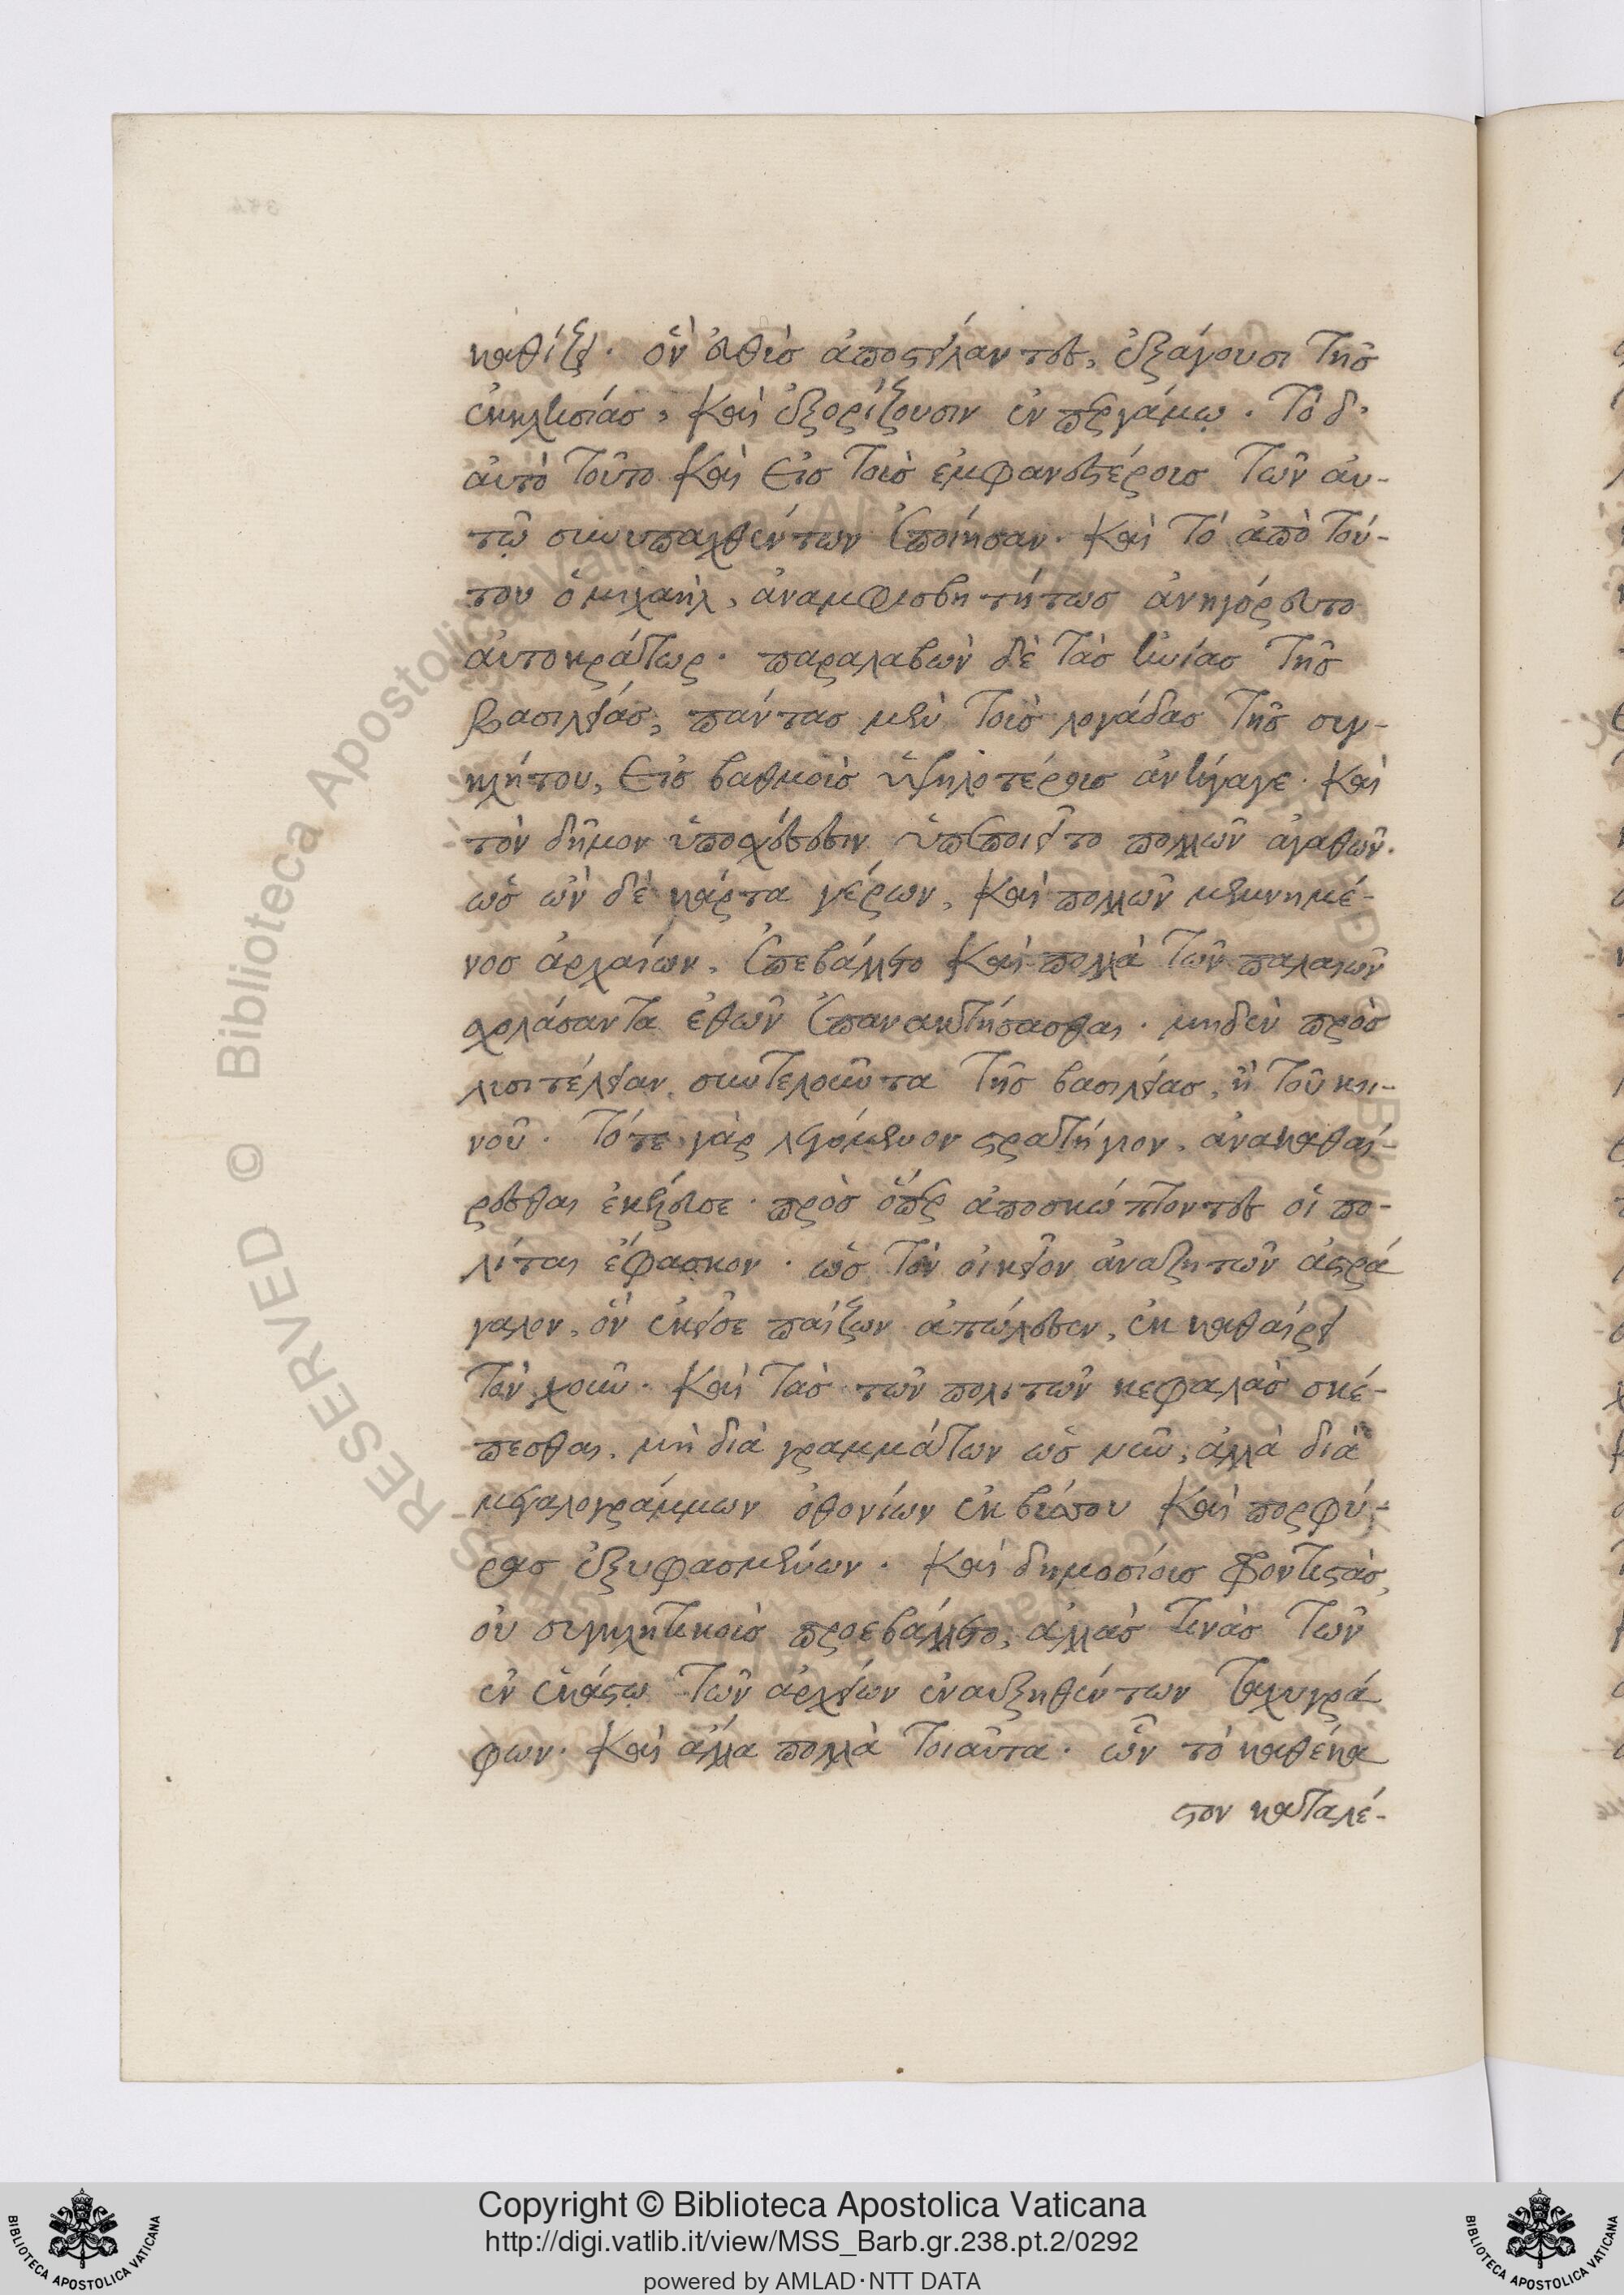 καθίζει. ὃν εὐθὺς ἀποστείλαντες, ἐξάγουσι τῆς
ἐκκλησίας, καὶ ἐξορίζουσιν ἐν περγάμῳ. Τὸ δ'
αὐτὸ τοῦτο καὶ εἰς τοὺς ἐμφανεστέρους τῶν αὐ-
τῷ συνυπαχθέντων ἐποίησαν. καὶ τὸ ἀπὸ τού-
του ὁ μιχαὴλ, ἀναμφισβητήτως ἀνηγόρευτο
αὐτοκράτωρ. παραλαβὼν δὲ τὰς ἡνίας τῆς
βασιλείας, πάντας μὲν τοὺς λογάδας τῆς συγ-
κλήτου, εἰς βαθμοὺς ὑψηλοτέρους ἀνήγαγε. καὶ
τὸν δῆμον ὑποσχέσεσιν ὑπεποιεῖτο πολλῶν ἀγαθῶν.
ὡς ὢν δὲ κάρτα γέρων, καὶ πολλῶν μεμνημέ-
νος ἀρχαίων, ἐπεβάλλετο καὶ πολλὰ τῶν παλαιῶν
σχολάσαντα ἐθῶν ἐπανακτήσασθαι. μηδὲν πρὸς
λυσιτέλειαν συντελοῦντα τῆς βασιλείας, ἢ τοῦ κοι-
νοῦ. Τό τε γὰρ λεγόμενον στρατήγιον, ἀνακαθαί-
ρεσθαι ἐκέλευσε. πρὸς ὅπερ ἀποσκώπτοντες οἱ πο-
λίται ἔφασκον. ὡς τὸν οἰκεῖον ἀναζητῶν ἀστρά
γαλον, ὃν ἐκεῖσε παίζων ἀπώλεσεν, ἐκκαθαίρει
τὸν χοῦν. καὶ τὰς τῶν πολιτῶν κεφαλὰς σκέ-
πεσθαι, μὴ διὰ γραμμάτων ὡς νῦν, ἀλλὰ διὰ
μεγαλογράμμων ὀθονίων ἐκ βύσσου καὶ πορφύ-
ρας ἐξυφασμένων. καὶ δημοσίους φροντιστὰς,
οὐ συγκλητικοὺς προεβάλλετο, ἀλλὰ τινὰς τῶν
ἐν ἑκάστῳ τῶν ἀρχείων ἐναυξηθέντων ταχυγρά
φων. καὶ ἄλλα πολλὰ τοιαῦτα. ὧν τὸ καθέκα
στον καταλέ-
Copyright © Biblioteca Apostolica Vaticana
http://digi.vatlib.it/view/MSS_Barb.gr.238.pt.2/0292
powered by AMLAD·NTT DATA